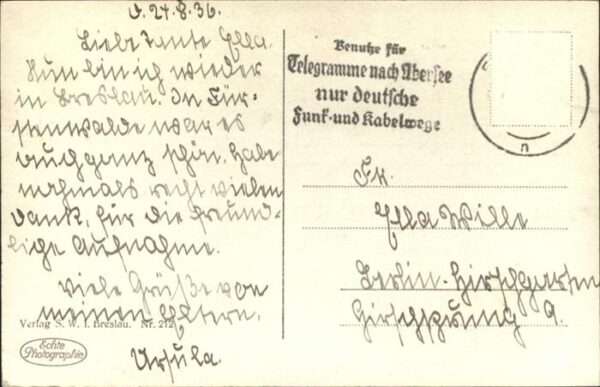 d. 24.8.36.
Liebe Tante Ella.
Nun bin ich wieder
in Breslau. In Für-
stenwalde war es
auch ganz schön. Habe
nochmals recht vielen
Dank, für die freund-
lige Aufnahme.
Viele Grüße von
meinen Eltern.
Ursula.
Verlag S. W. I. Breslau. Nr. 212
Echte
Photographie
Benutze für
Telegramme nach Übersee
nur deutsche
Funk- und Kabelwege
n
Fr.
Ella Wille
Berlin-Hirschgarten
Hirschsprung 9.